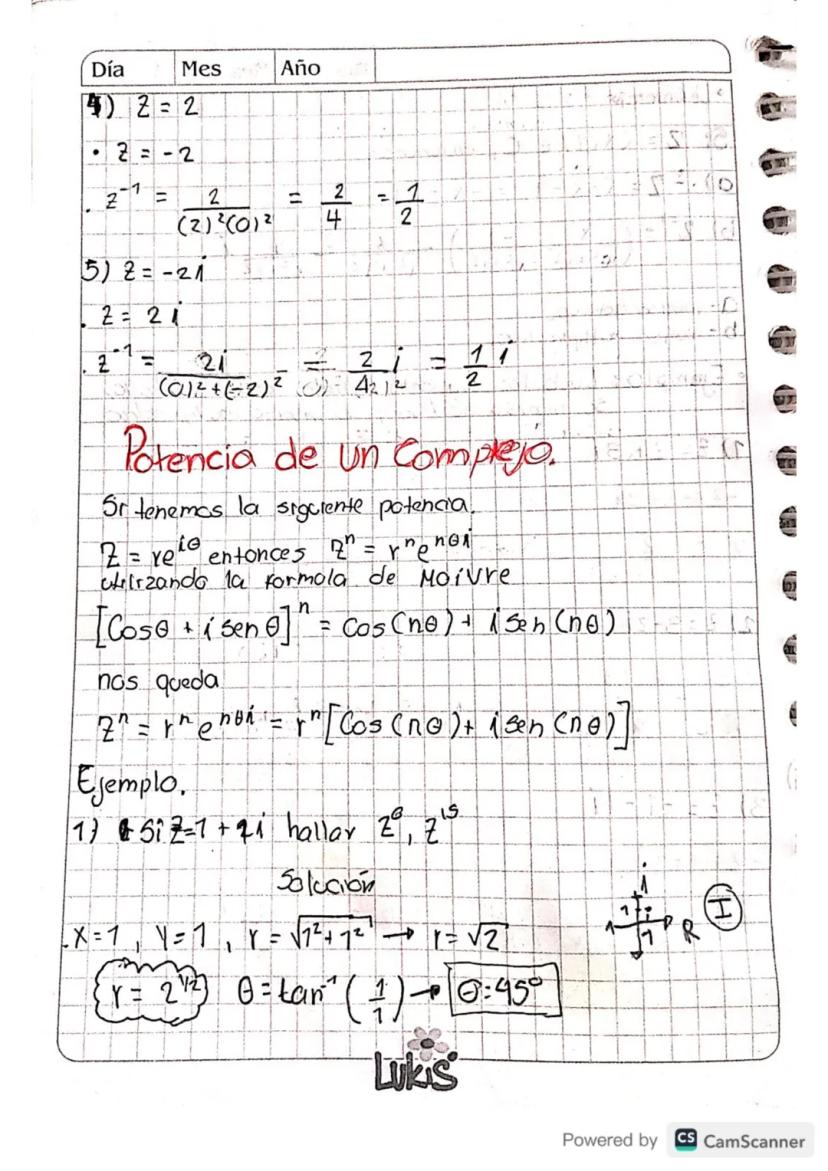 Día Mes Año
4) Z = 2
• Z = -2
. Z⁻¹ = 2/((2)²(0)²) = 2/4 = 1/2
5) Z = -2i
. Z = 2i
. Z⁻¹ = 2i/((0)²+(-2)²) = 2i/4 = 1/2 i
Potencia de un Complejo.
Si tenemos la siguiente potencia.
Z = re^(iθ) entonces Zⁿ = rⁿe^(nθi)
utilizando la formula de Moivre
[Cosθ + i sen θ]ⁿ = Cos(nθ) + i Sen(nθ)
nos queda
Zⁿ = rⁿ e^(nθi) = rⁿ [Cos(nθ) + i Sen(nθ)]
Ejemplo.
1) Si Z=1 + 1i hallar Z⁸, Z¹⁵
Solución
i
1
1 R I
.X=1, Y=1, r = √(1²+1²) → r = √2
r = 2^(1/2) θ = tan⁻¹ (1/1) → θ:45°
LUKiS
Powered by CS CamScanner